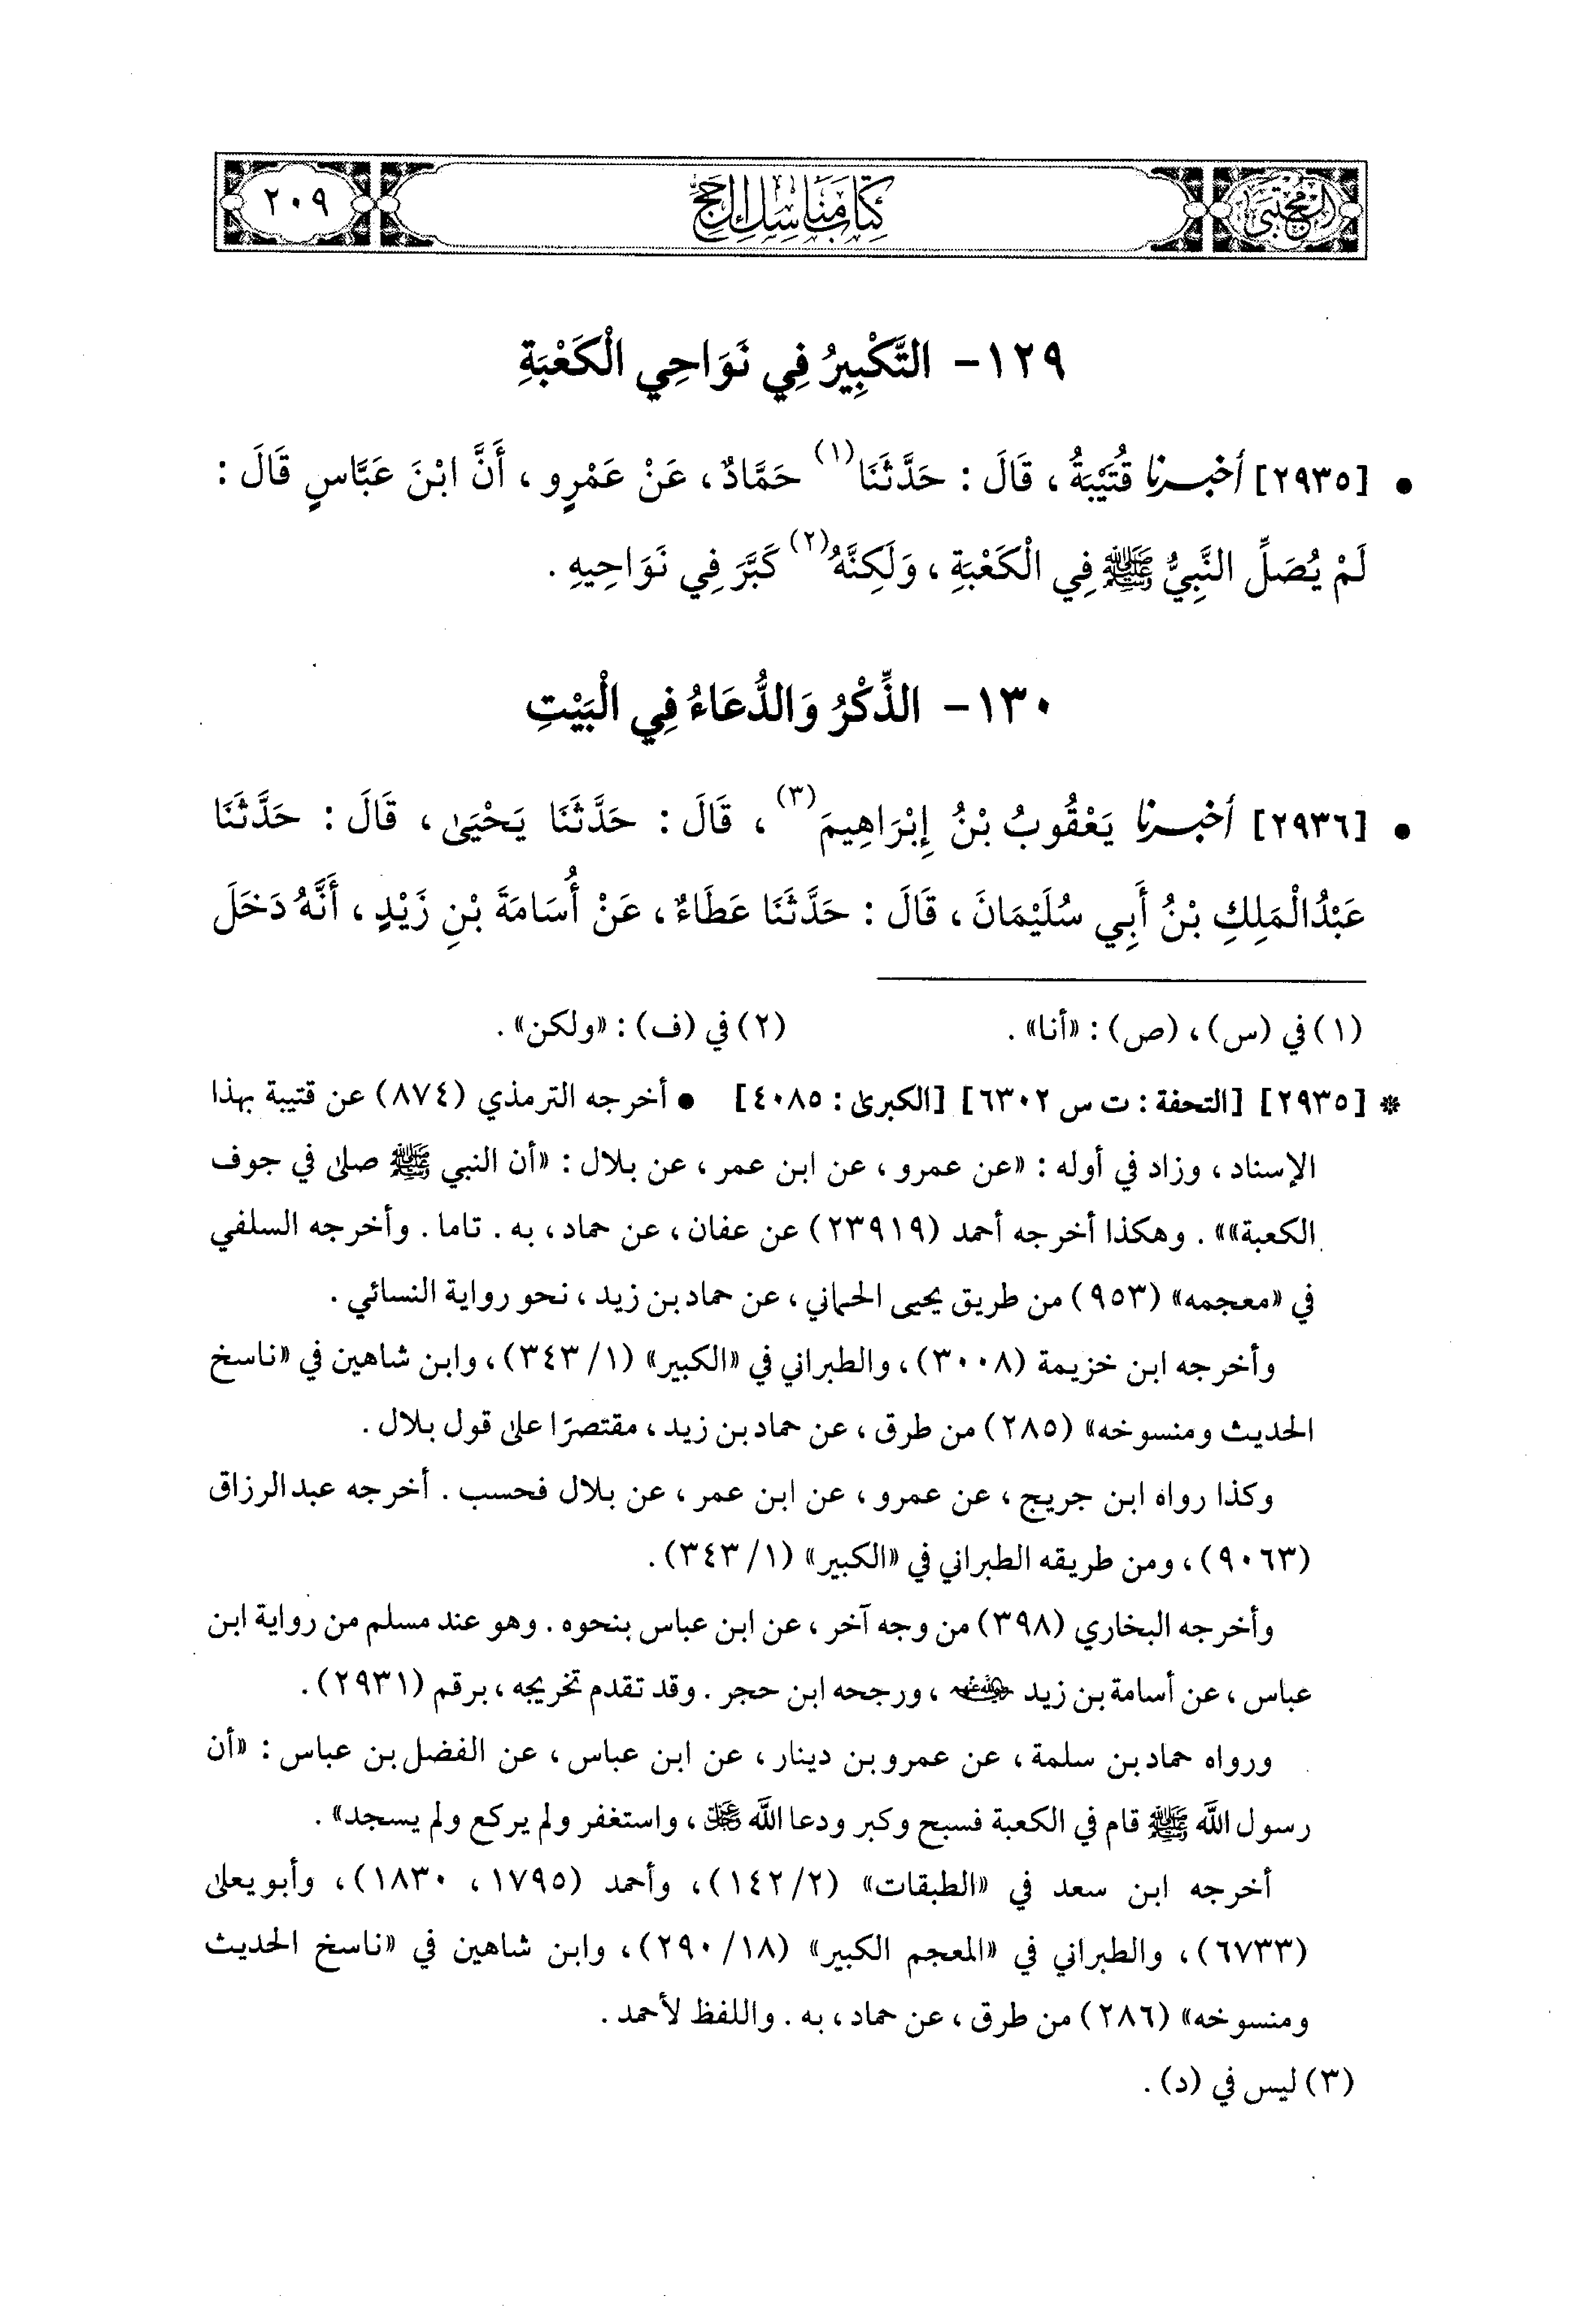 المجتبى
كتاب مناسك الحج
٢٠٩
١٢٩- التَّكْبِيرُ فِي نَوَاحِي الْكَعْبَةِ
• [٢٩٣٥] أخبرنا قُتَيْبَةُ، قَالَ: حَدَّثَنَا(١) حَمَّادٌ، عَنْ عَمْرٍو، أَنَّ ابْنَ عَبَّاسٍ قَالَ:
لَمْ يُصَلِّ النَّبِيُّ ﷺ فِي الْكَعْبَةِ، وَلَكِنَّهُ(٢) كَبَّرَ فِي نَوَاحِيهِ.
١٣٠- الذِّكْرُ وَالدُّعَاءُ فِي الْبَيْتِ
• [٢٩٣٦] أخبرنا يَعْقُوبُ بْنُ إِبْرَاهِيمَ(٣)، قَالَ: حَدَّثَنَا يَحْيَىٰ، قَالَ: حَدَّثَنَا
عَبْدُالْمَلِكِ بْنُ أَبِي سُلَيْمَانَ، قَالَ: حَدَّثَنَا عَطَاءٌ، عَنْ أُسَامَةَ بْنِ زَيْدٍ، أَنَّهُ دَخَلَ
(١) في (س)، (ص): «أنا». (٢) في (ف): «ولكن».
* [٢٩٣٥] [التحفة: ت س ٦٣٠٢] [الكبرىٰ: ٤٠٨٥] • أخرجه الترمذي (٨٧٤) عن قتيبة بهذا
الإسناد، وزاد في أوله: «عن عمرو، عن ابن عمر، عن بلال: «أن النبي ﷺ صلىٰ في جوف
الكعبة»». وهكذا أخرجه أحمد (٢٣٩١٩) عن عفان، عن حماد، به. تاما. وأخرجه السلفي
في «معجمه» (٩٥٣) من طريق يحيى الحماني، عن حماد بن زيد، نحو رواية النسائي.
وأخرجه ابن خزيمة (٣٠٠٨)، والطبراني في «الكبير» (١/ ٣٤٣)، وابن شاهين في «ناسخ
الحديث ومنسوخه» (٢٨٥) من طرق، عن حماد بن زيد، مقتصرًا علىٰ قول بلال.
وكذا رواه ابن جريج، عن عمرو، عن ابن عمر، عن بلال فحسب. أخرجه عبدالرزاق
(٩٠٦٣)، ومن طريقه الطبراني في «الكبير» (١/ ٣٤٣).
وأخرجه البخاري (٣٩٨) من وجه آخر، عن ابن عباس بنحوه. وهو عند مسلم من رواية ابن
عباس، عن أسامة بن زيد رضي الله عنه، ورجحه ابن حجر. وقد تقدم تخريجه، برقم (٢٩٣١).
ورواه حماد بن سلمة، عن عمرو بن دينار، عن ابن عباس، عن الفضل بن عباس: «أن
رسول اللَّه ﷺ قام في الكعبة فسبح وكبر ودعا اللَّه عز وجل، واستغفر ولم يركع ولم يسجد».
أخرجه ابن سعد في «الطبقات» (٢/ ١٤٢)، وأحمد (١٧٩٥، ١٨٣٠)، وأبو يعلىٰ
(٦٧٣٣)، والطبراني في «المعجم الكبير» (١٨/ ٢٩٠)، وابن شاهين في «ناسخ الحديث
ومنسوخه» (٢٨٦) من طرق، عن حماد، به. واللفظ لأحمد.
(٣) ليس في (د).